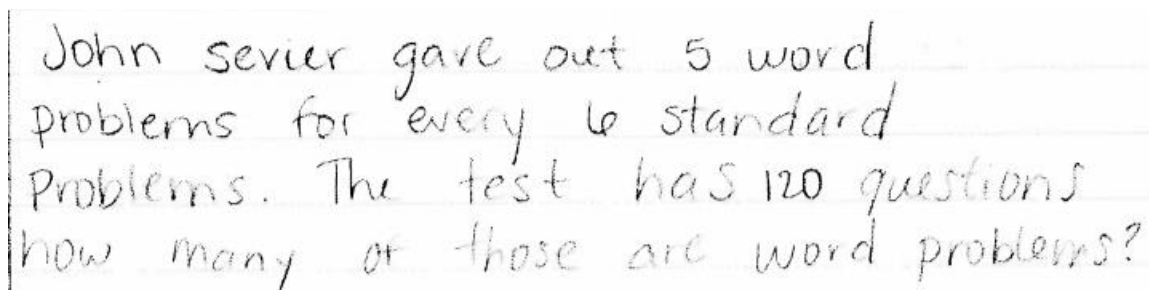 John sevier gave out 5 word
problems for every 6 standard
problems. The test has 120 questions
how many of those are word problems?